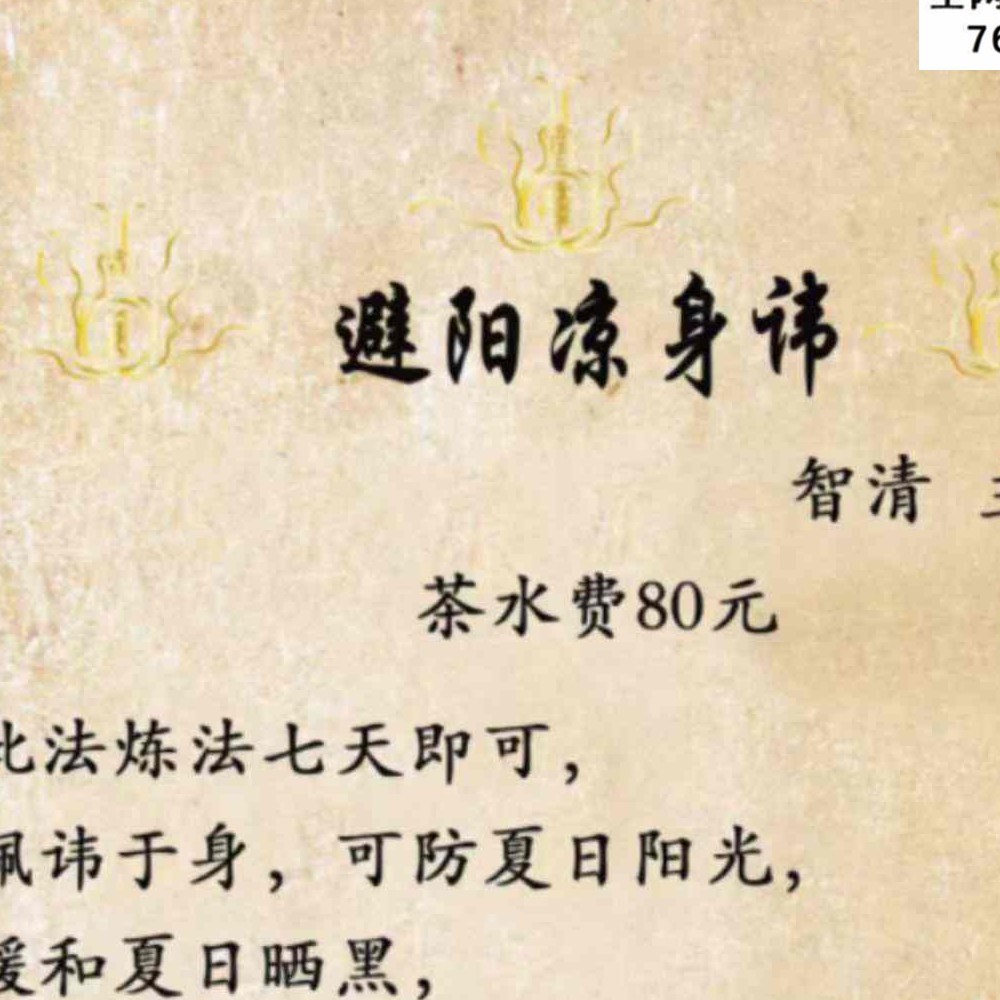 76
避阳凉身讳
智清
茶水费80元
此法炼法七天即可，
佩讳于身，可防夏日阳光，
缓和夏日晒黑，